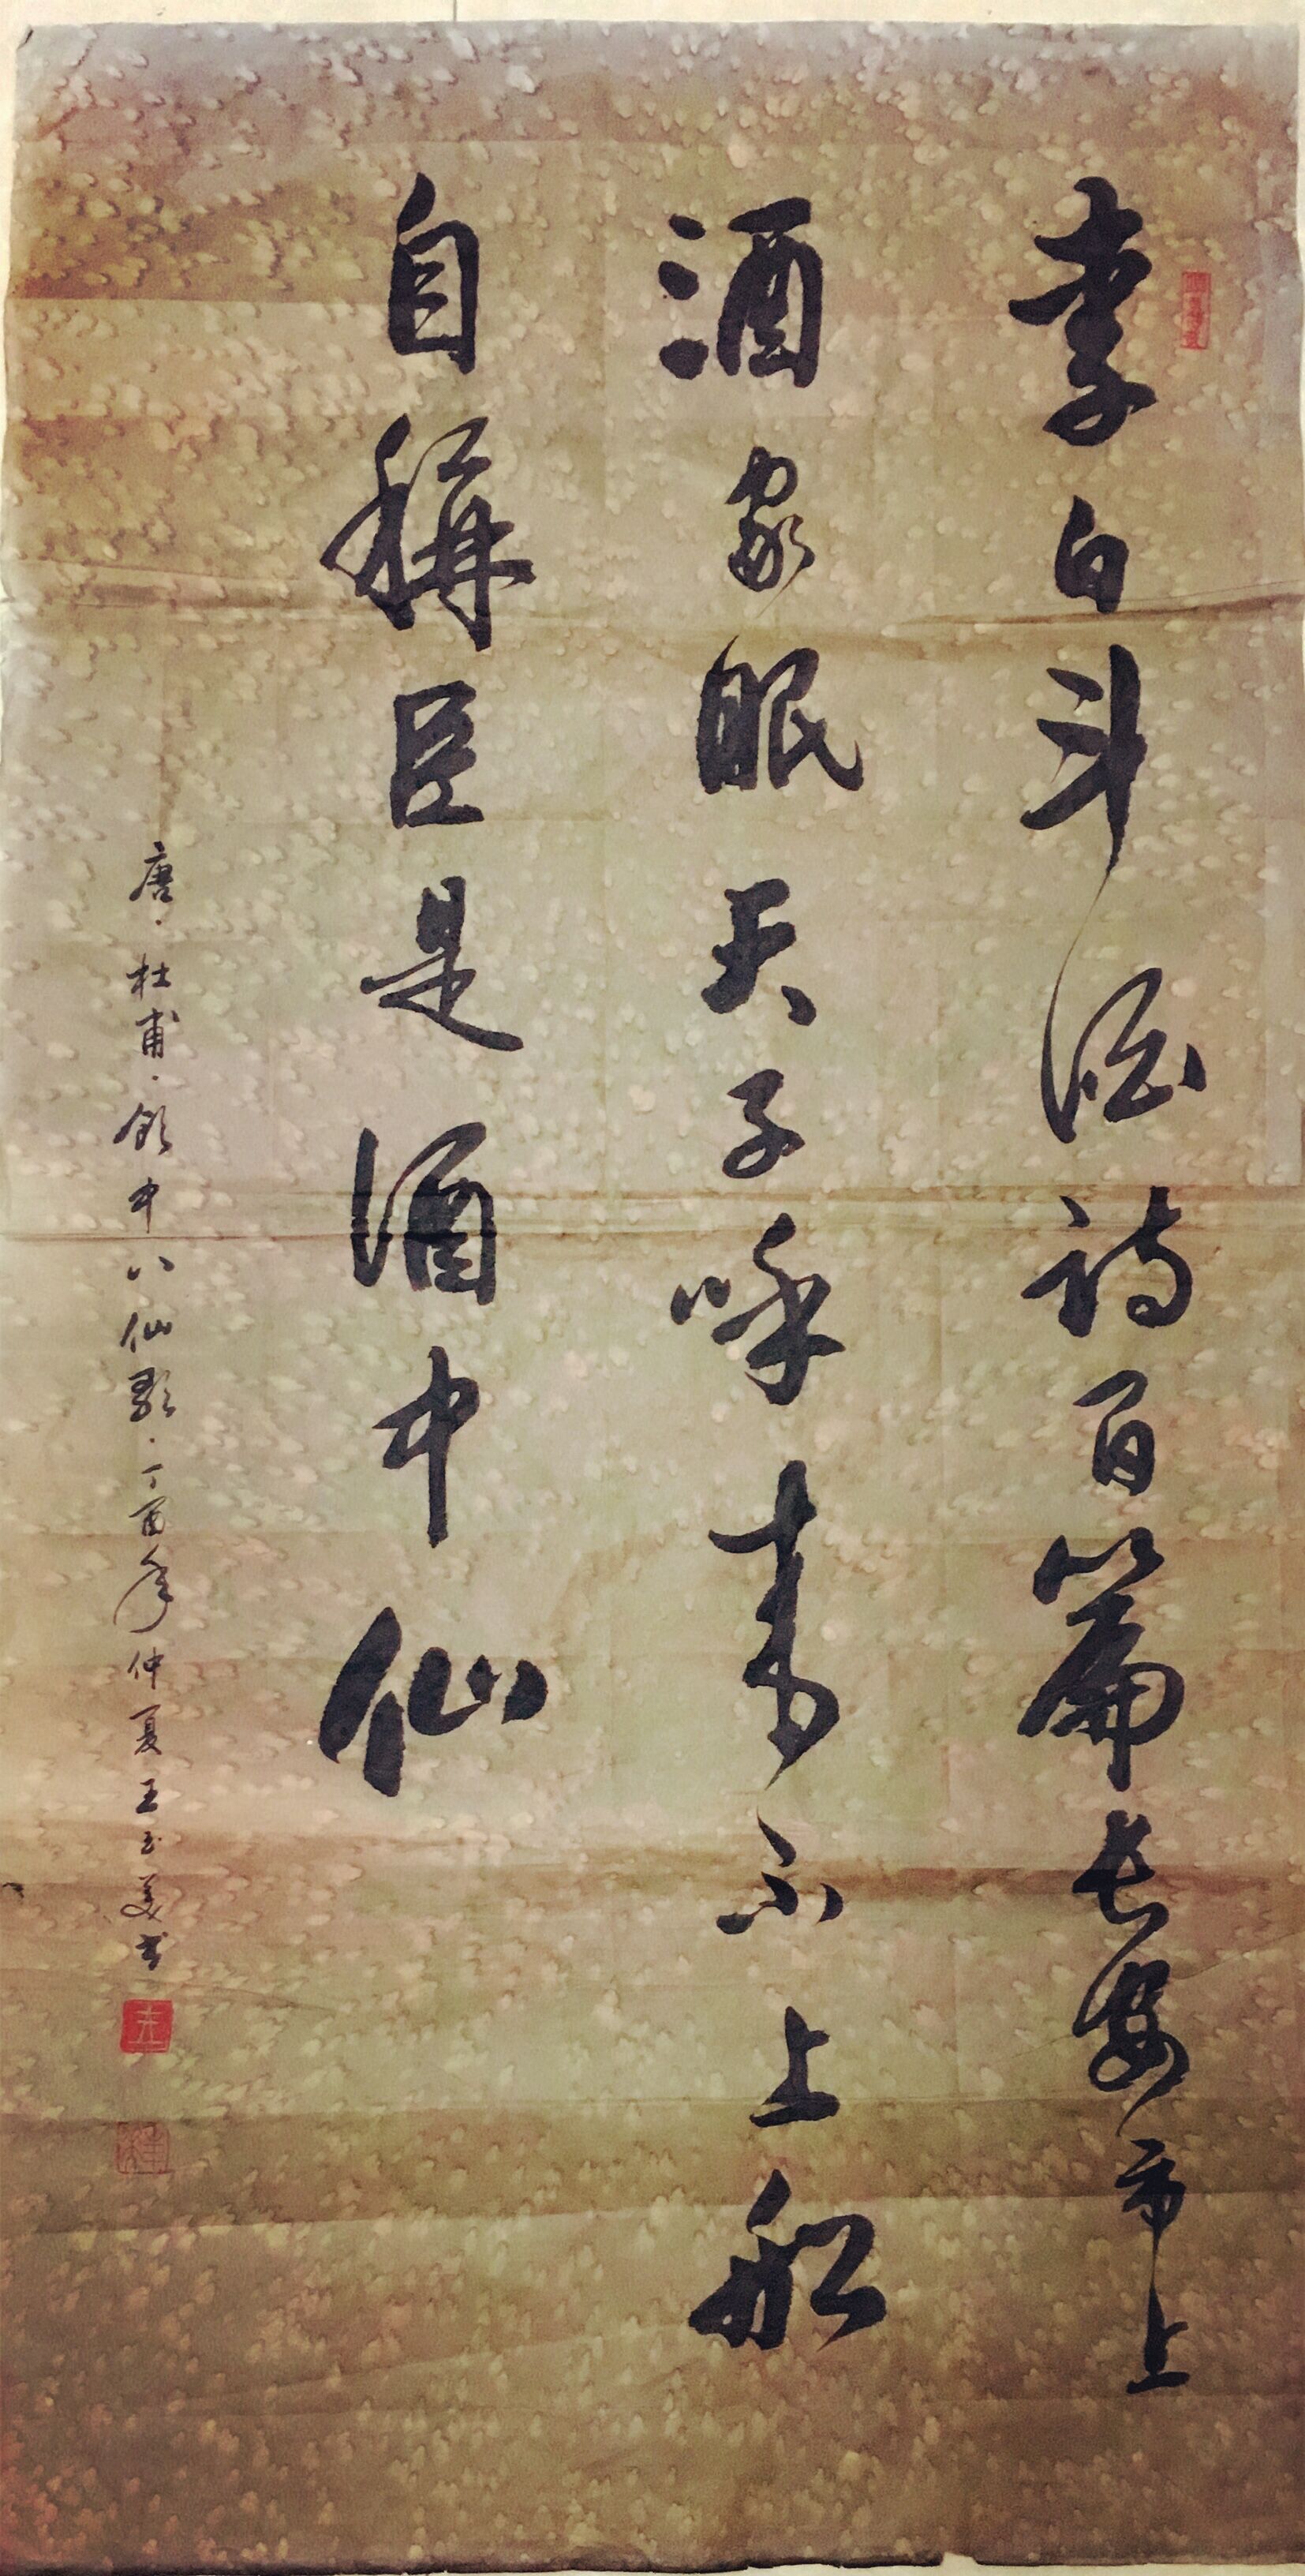 李白斗酒詩百篇長安市上
酒家眠天子呼来不上船
自稱臣是酒中仙
唐·杜甫·飲中八仙歌·丁酉年仲夏王玉美书